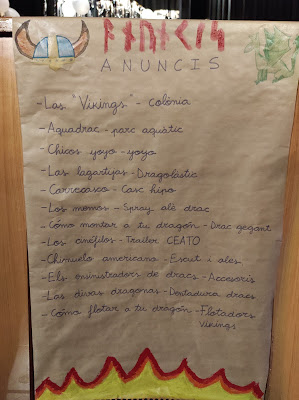 ANUNCIS
- Las "Vikings" - colònia
- Aquadrac - parc aquàtic
- Chicos yoyo - yoyo
- Las lagartijas - Dragolàstic
- Carrcasco - Casc hipo
- Los memos - Spray alè drac
- Cómo montar a tu dragón - Drac gegant
- Los cinéfilos - Trailer CEATO
- Chiruelo americano - Escut i ales
- Els ensinistradors de dracs - Accesoris
- Las divas dragonas - Dentadura dracs
- Cómo flotar a tu dragón - Flotadors
vikings